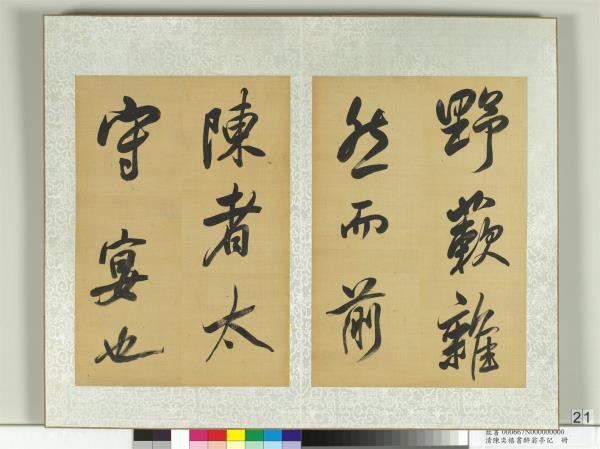 野蔌雜
然而前
陳者太
守宴也
21
故書 000667N000000000
清陳奕禧書醉翁亭記 冊